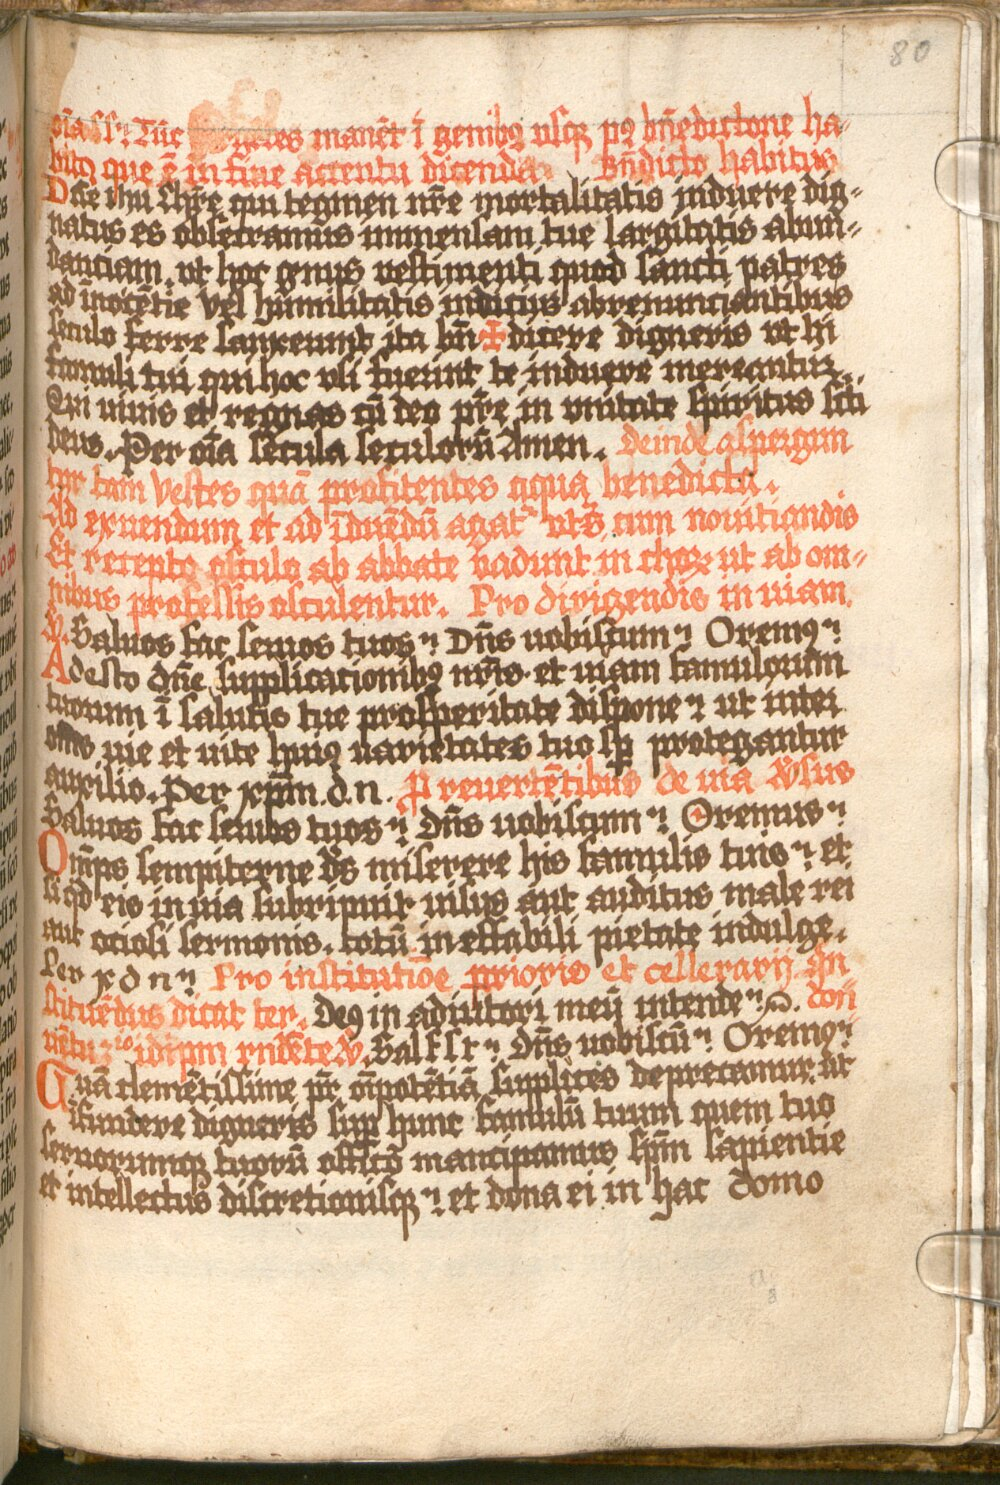 80
oīa ss͛ Tūc manēt ī genibꝰ usqꝫ pꝰ bn̄edictone ha-
bitꝰ que ē in fine accentu dicenda. Bn̄dictio habitus
Dn̄e ihu chr̄e qui tegmen nr̄e mortalitatis induere dig-
natus es obsecramus immensam tue largitatis abun-
danciam. vt hoc genus vestimenti quod sancti patres
ad īnocētie vel humilitatis indicius abrenunciantibus
seculo ferre sanxerunt ita bn̄ ✠ dicere digneris vt hi
famuli tui qui hoc usi fuerint te induere mereantur.
Qui uiuis et regnas cū deo pr̄e in vnitate spiritus scti
deus. Per oīa secula seculorū Amen. Deinde aspergan
tur tam vestes quā profitentes aqua benedicta.
Ad exuendum et ad īduēdū agat͛ vts͛ cum nouiciandis
Et recepto osculo ab abbate vadunt in choꝝ ut ab om-
nibus professis osculentur. Pro dirigendis in uiam.
V. Saluos fac seruos tuos ⁊ Dn̄s uobiscum ⁊ Oremꝰ ⁊
Adesto dn̄e supplicationibꝰ nr̄is. et uiam famulorum
tuorum ī salutis tue prosperitate dispone ⁊ ut inter
om̄s uie et uite huiꝰ varietates tuo sp̄ protegantur
auxilio. Per xp̄m. d. n. P̄ reuertētibus de uia Vsus
Saluos fac seruos tuos ⁊ Dn̄s uobiscum ⁊ Oremus ⁊
Om̄ps sempiterne ds̄ miserere his famulis tuis ⁊ et
si qd eis in uia subripuit uisus aut auditus male rei
aut ociosi sermonis. totū ineffabili pietate indulge.
Per x d n ⁊ Pro institutiōe prioris et cellerarij. In
stituēdus dicat ter. Deꝰ in adiutori meū intende ⁊ con
uētu idipm rn̄dete V. Sal f s t ⁊ Dn̄s uobiscū ⁊ Oremꝰ ⁊
Quā clemētissime pr̄ om̄potētiā supplices deprecamur. ut
īfundere digneris sup hunc famulū tuum quem tuo
seruorumqꝫ tuorū officō mancipamus spm̄ sapientie
et intellectus discretionisqꝫ ⁊ et dona ei in hac domo